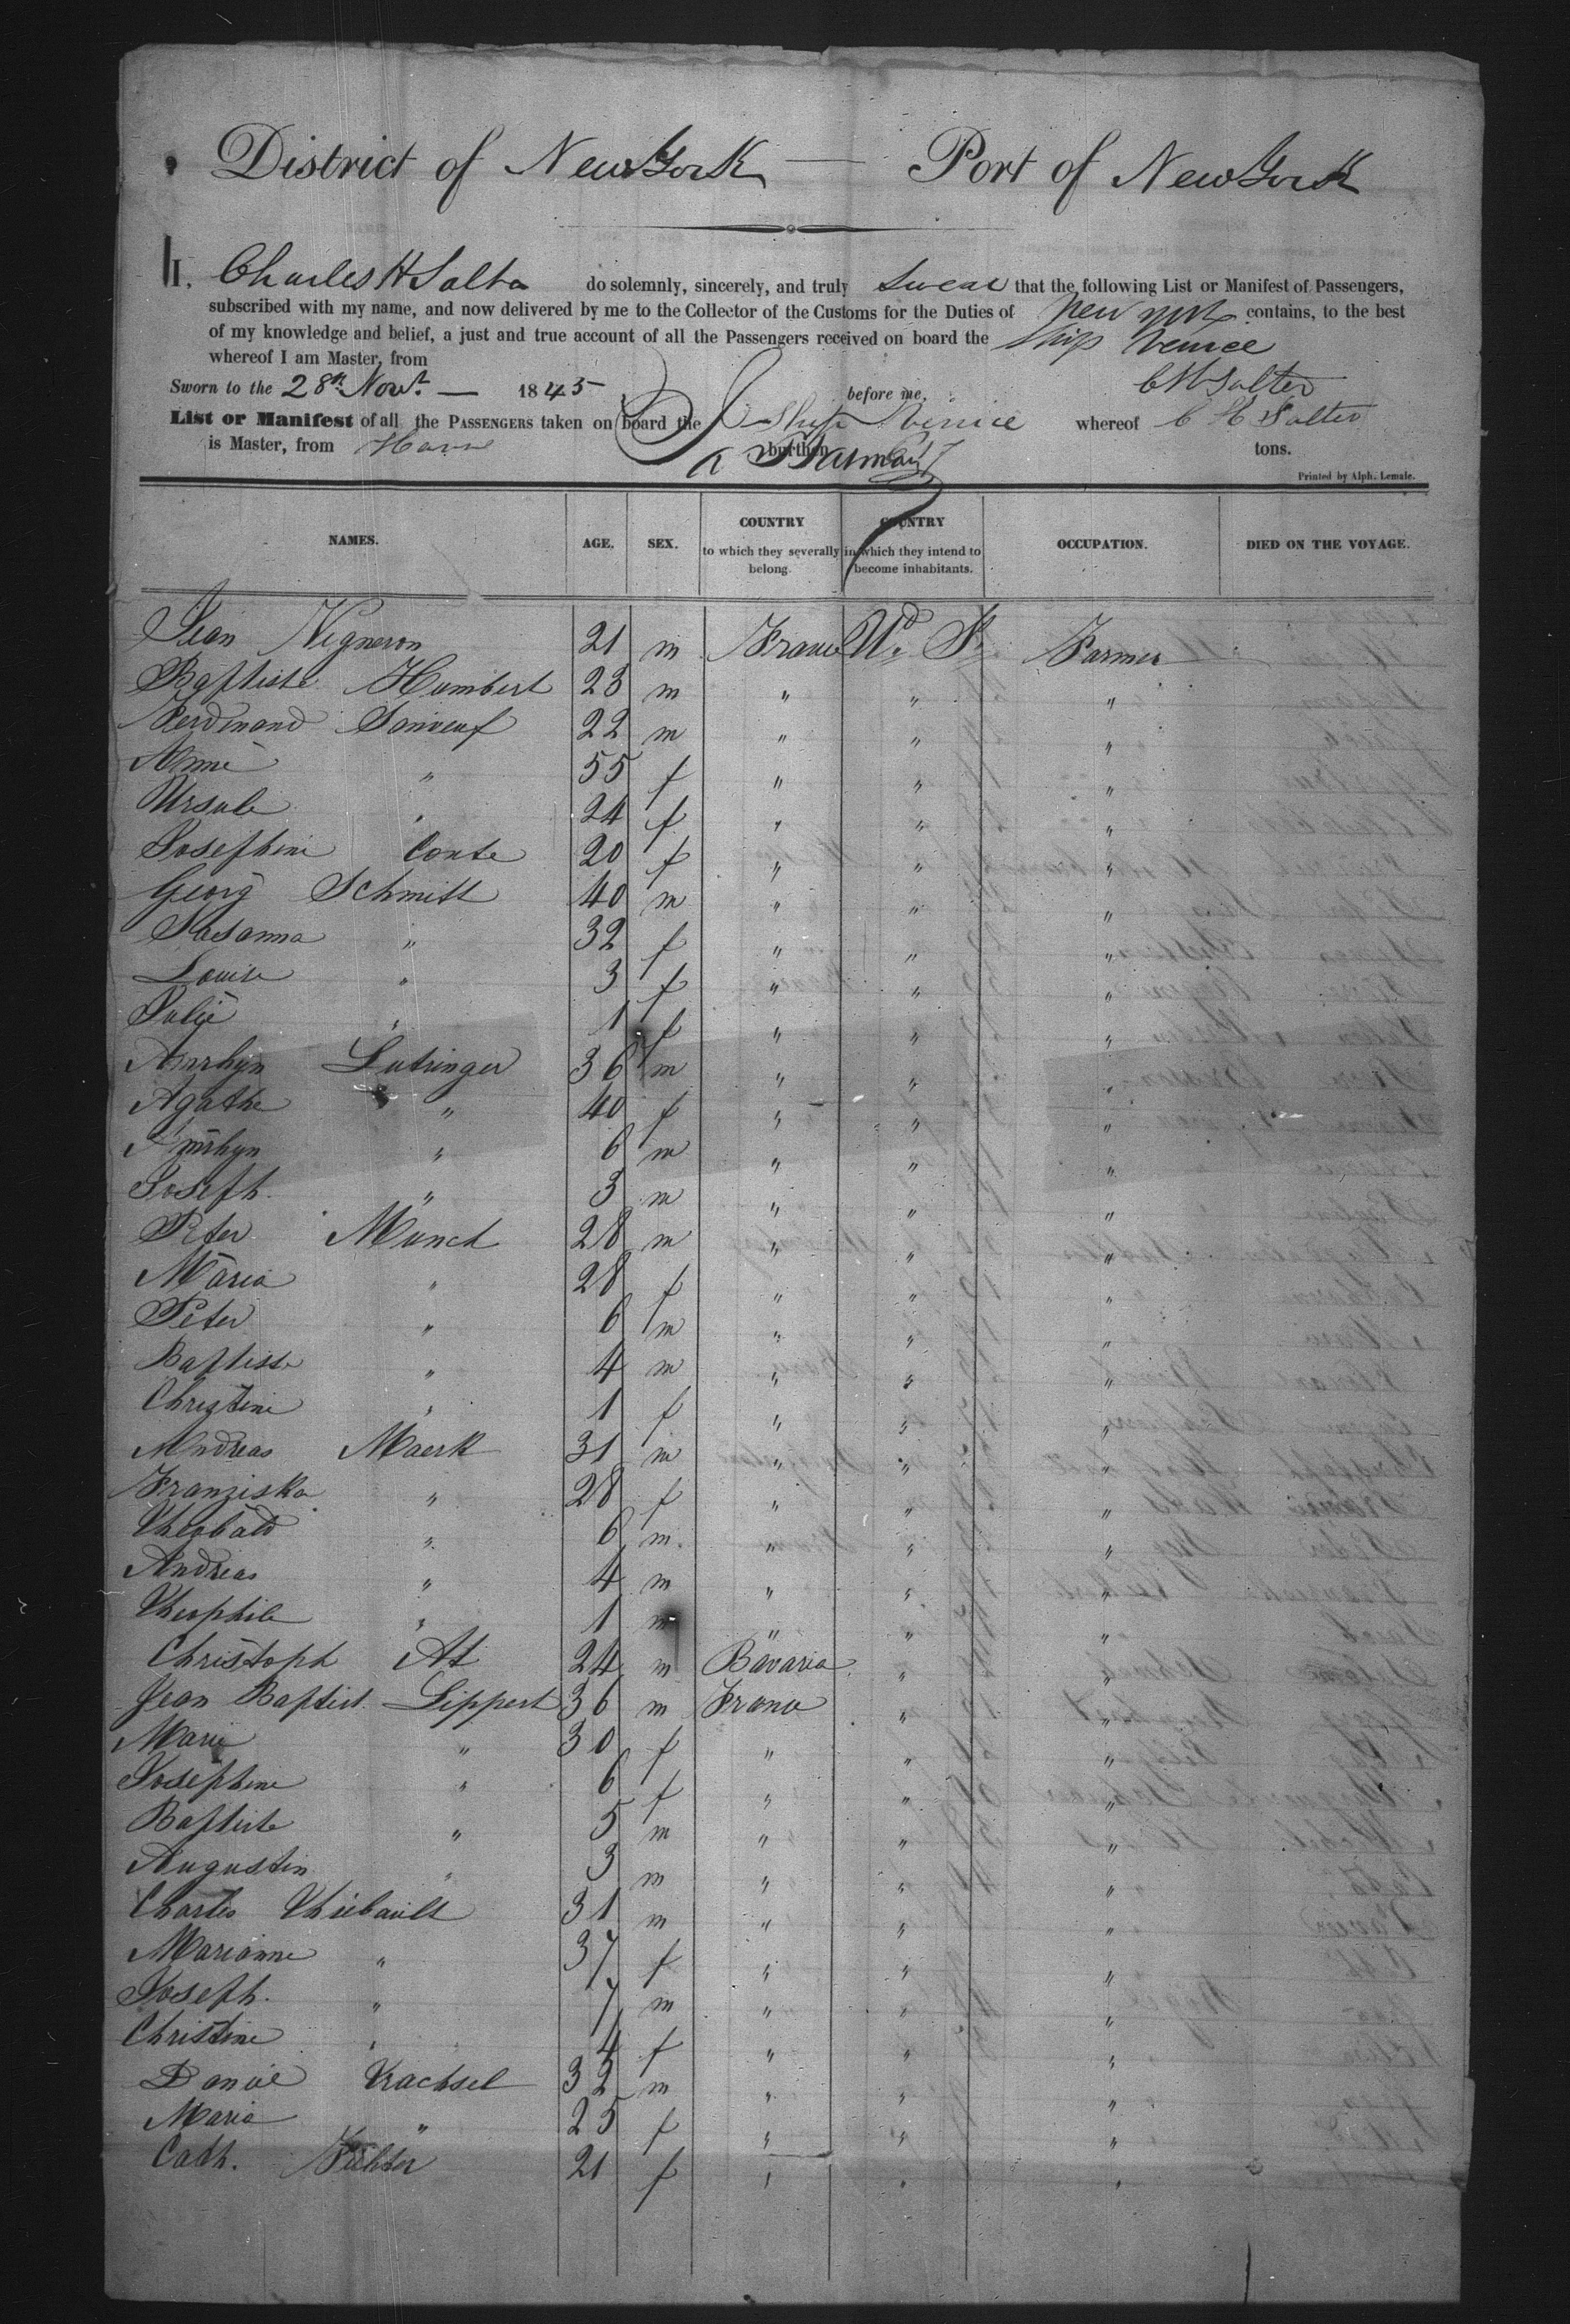 District of New York — Port of New York
I, Charles H Salter do solemnly, sincerely, and truly swear that the following List or Manifest of Passengers,
subscribed with my name, and now delivered by me to the Collector of the Customs for the Duties of New York contains, to the best
of my knowledge and belief, a just and true account of all the Passengers received on board the Ship Venice
whereof I am Master, from
Sworn to the 28th Novr. — 1845 before me, C H Salter
List or Manifest of all the PASSENGERS taken on board the Ship Venice whereof C H Salter
is Master, from Havre burthen tons.
Printed by Alph. Lemale.
NAMES. AGE. SEX. COUNTRY to which they severally belong. COUNTRY in which they intend to become inhabitants. OCCUPATION. DIED ON THE VOYAGE.
Jean Vigneron 21 m France Ud. St. Farmer
Baptiste Humbert 23 m " " "
Ferdinand 22 m " " "
Anne " 55 f " " "
Ursule " 24 f " " "
Josephine Conte 20 f " " "
Georg Schmitt 40 m " " "
Susanna " 32 f " " "
Louise " 3 f " " "
Julie " 1 f " " "
Amrhyn Lutringer 36 m " " "
Agathe " 40 f " " "
Amrhyn " 6 m " " "
Joseph. " 3 m " " "
Peter Münch 28 m " " "
Maria " 28 f " " "
Peter " 6 m " " "
Baptiste " 4 m " " "
Christine " 1 f " " "
Andreas Maerk 31 m " " "
Franziska " 28 f " " "
Theobald " 6 m. " " "
Andreas " 4 m " " "
Theophile " 1 m " " "
Christoph At 24 m Bavaria " "
Jean Baptist Lippert 36 m France " "
Marie " 30 f " " "
Josephine " 6 f " " "
Baptiste " 5 m " " "
Augustin " 3 m " " "
Charles Thiebault 31 m " " "
Marianne " 37 f " " "
Joseph. " 7 m " " "
Christine " 4 f " " "
Daniel Trachsel 32 m " " "
Maria " 25 f " " "
Cath. 21 f " " "